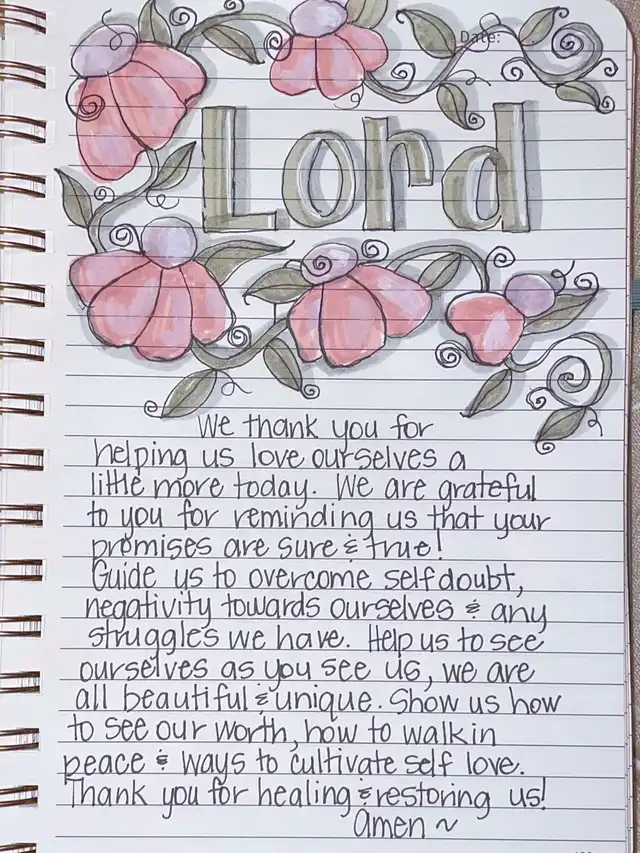 Date:
Lord
We thank you for
helping us love ourselves a
little more today. We are grateful
to you for reminding us that your
promises are sure & true!
Guide us to overcome self doubt,
negativity towards ourselves & any
struggles we have. Help us to see
ourselves as you see us, we are
all beautiful & unique. Show us how
to see our worth, how to walk in
peace & ways to cultivate self love.
Thank you for healing & restoring us!
amen ~